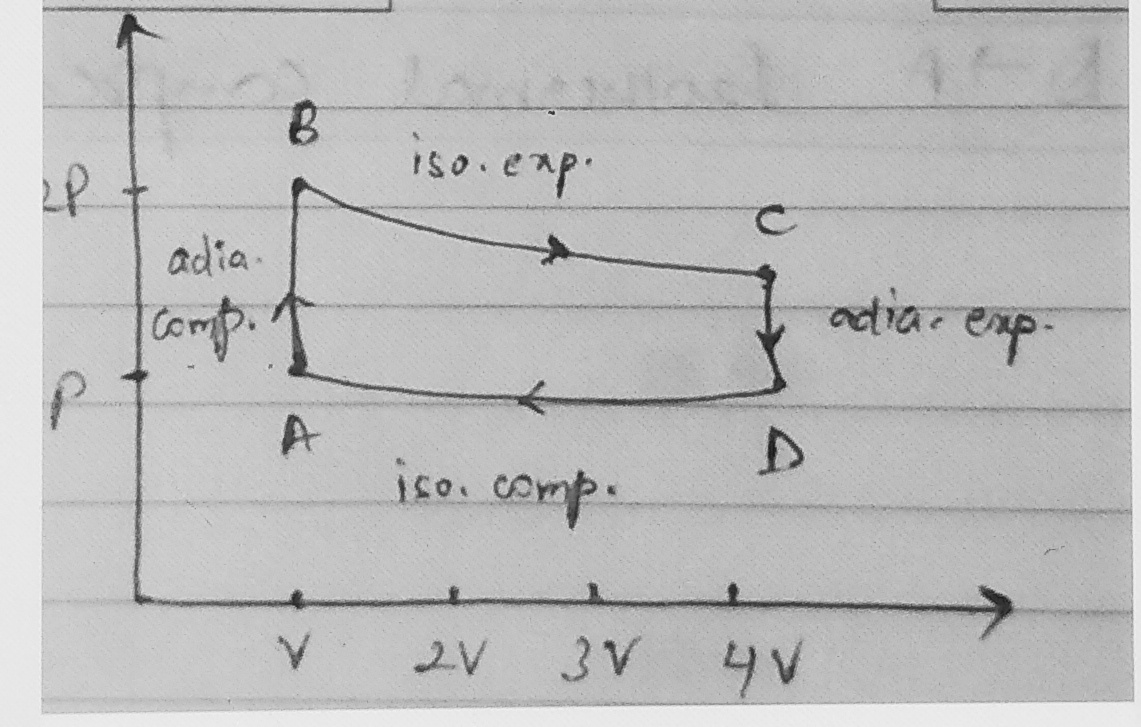 B
iso. exp.
2P
C
adia.
comp.
adia. exp.
P
A
D
iso. comp.
V 2V 3V 4V